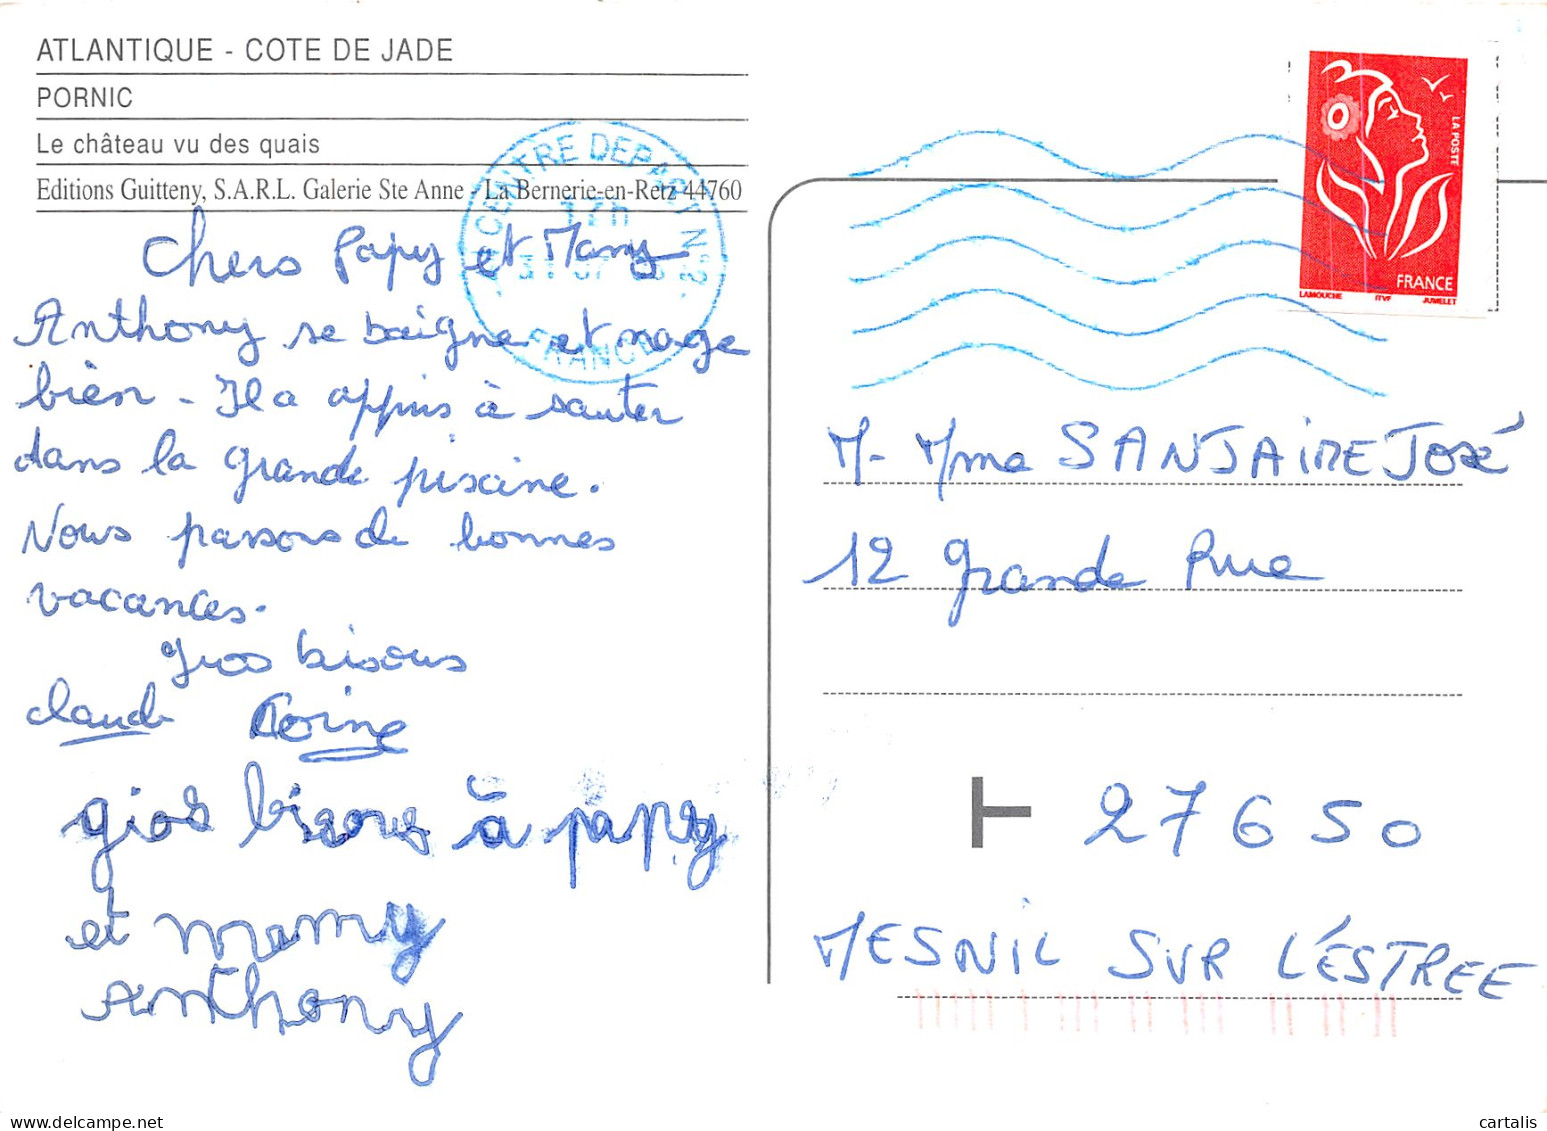 ATLANTIQUE - COTE DE JADE
PORNIC
Le château vu des quais
Editions Guitteny, S.A.R.L. Galerie Ste Anne - La Bernerie-en-Retz 44760
CENTRE DEPART N°2
17H
FRANCE
LA POSTE
FRANCE
LAMOUCHE ITVF JUMELET
Chers Papy et Mamy
Anthony se baigne et nage
bien - Il a appris à sauter
dans la grande piscine.
Nous passons de bonnes
vacances.
gros bisous
Claude Corine
gros bisous à papy
et mamy
Anthony
M - Mme SANJAIME José
12 Grande Rue
27650
MESNIL SUR L'ESTREE
cartalis